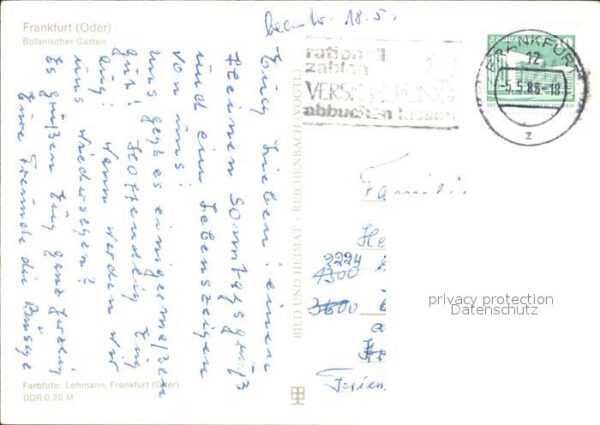 Frankfurt (Oder)
Botanischer Garten
beantw. 18.5.
Euch Lieben einen
kleinen Sonntagsgruß
und ein Lebenszeigen
von uns!
Uns geht es einigermaßen
gut! Hoffendlich Euch
auch! Wann werden wir
uns wiedersehen?
Es grüßen Euch ganz herzlich
Eure Freunde die
BILD UND HEIMAT · REICHENBACH (VOGTL)
rationell
zahlen
VERSICHERUNG
abbuchen lassen
FRANKFURT
12
-5.5.86-18
z
10
Familie
He
2224
4300
3600
Ferien
privacy protection
Datenschutz
Farbfoto: Lehmann, Frankfurt (Oder)
DDR 0,20 M